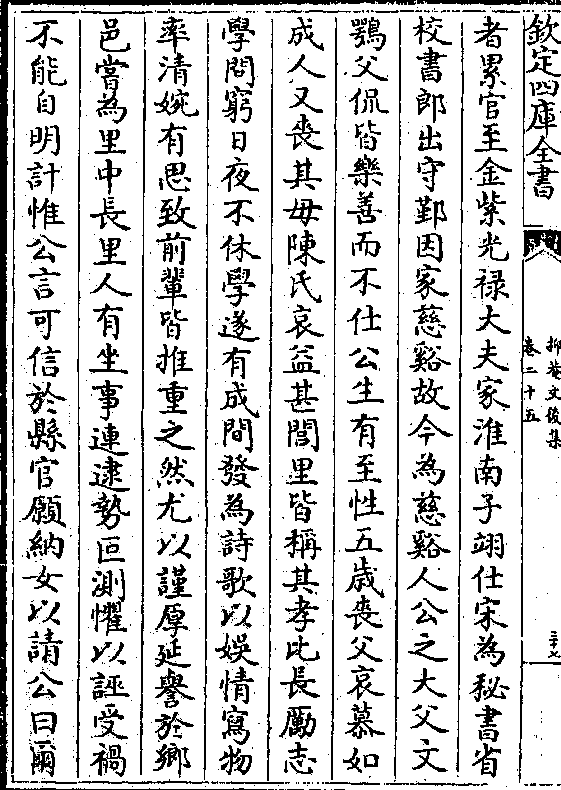 欽定四庫全書
抑菴文後集
卷二十五
三十七
者累官至金紫光祿大夫家淮南子翊仕宋為秘書省
校書郎出守鄞因家慈谿故今為慈谿人公之大父文
鶚父侃皆樂善而不仕公生有至性五歲喪父哀慕如
成人又喪其母陳氏哀益甚閭里皆稱其孝比長勵志
學問窮日夜不休學遂有成間發為詩歌以娛情寫物
率清婉有思致前輩皆推重之然尤以謹厚延譽於鄉
邑嘗為里中長里人有坐事連逮勢叵測懼以誣受禍
不能自明計惟公言可信於縣官願納女以請公曰爾